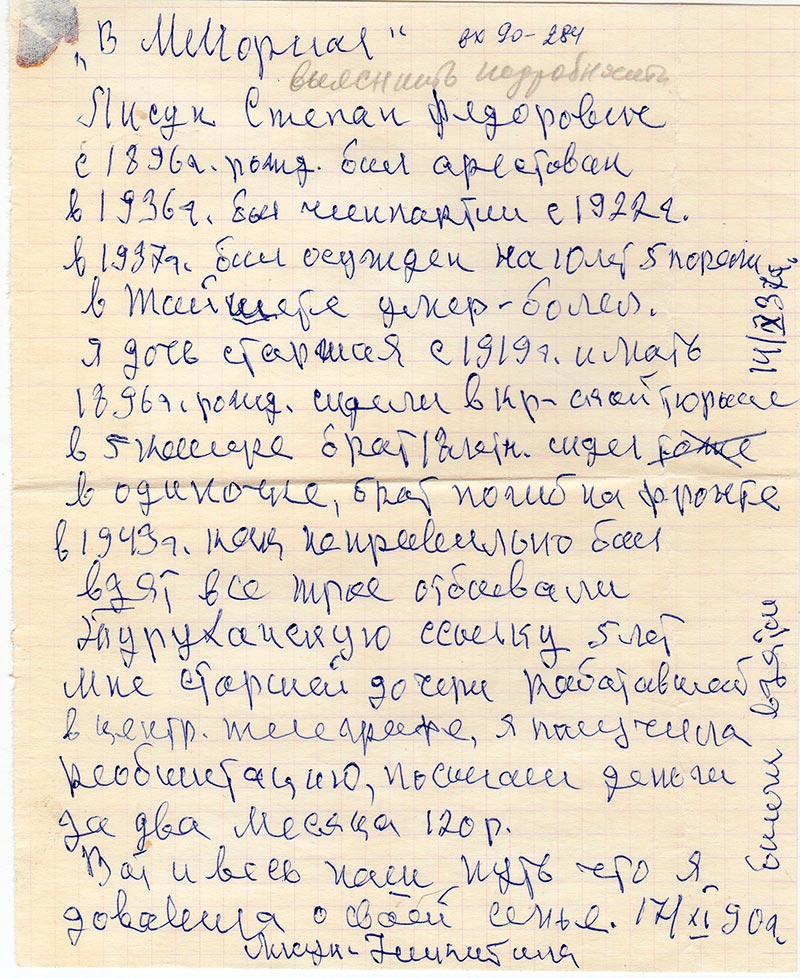 „В Мемориал“ вх 90-284
выяснить подробности
Лисук Степан Федорович
с 1896г. рожд. был арестован
в 1936г. был член партии с 1922г.
в 1937г. был осужден на 10 лет 5 пораж
в Тайшете умер-болел.
я дочь старшая с 1919г. и мать
1896г. рожд. сидели в Кр-ской тюрьме
в 5 камере брат сидел тоже
в одиночке, брат погиб на фронте
в 1943г. как неправильно был
взят все трое отбывали
Туруханскую ссылку 5 лет
мне старшей дочери работавшей
в центр. телеграфе, я получила
реобилитацию, послали деньги
за два месяца 120р.
Вот и весь наш путь что я
о своей семье. 17/XI 90г
Лисук-Никитина
были взяты
14/X 37г.